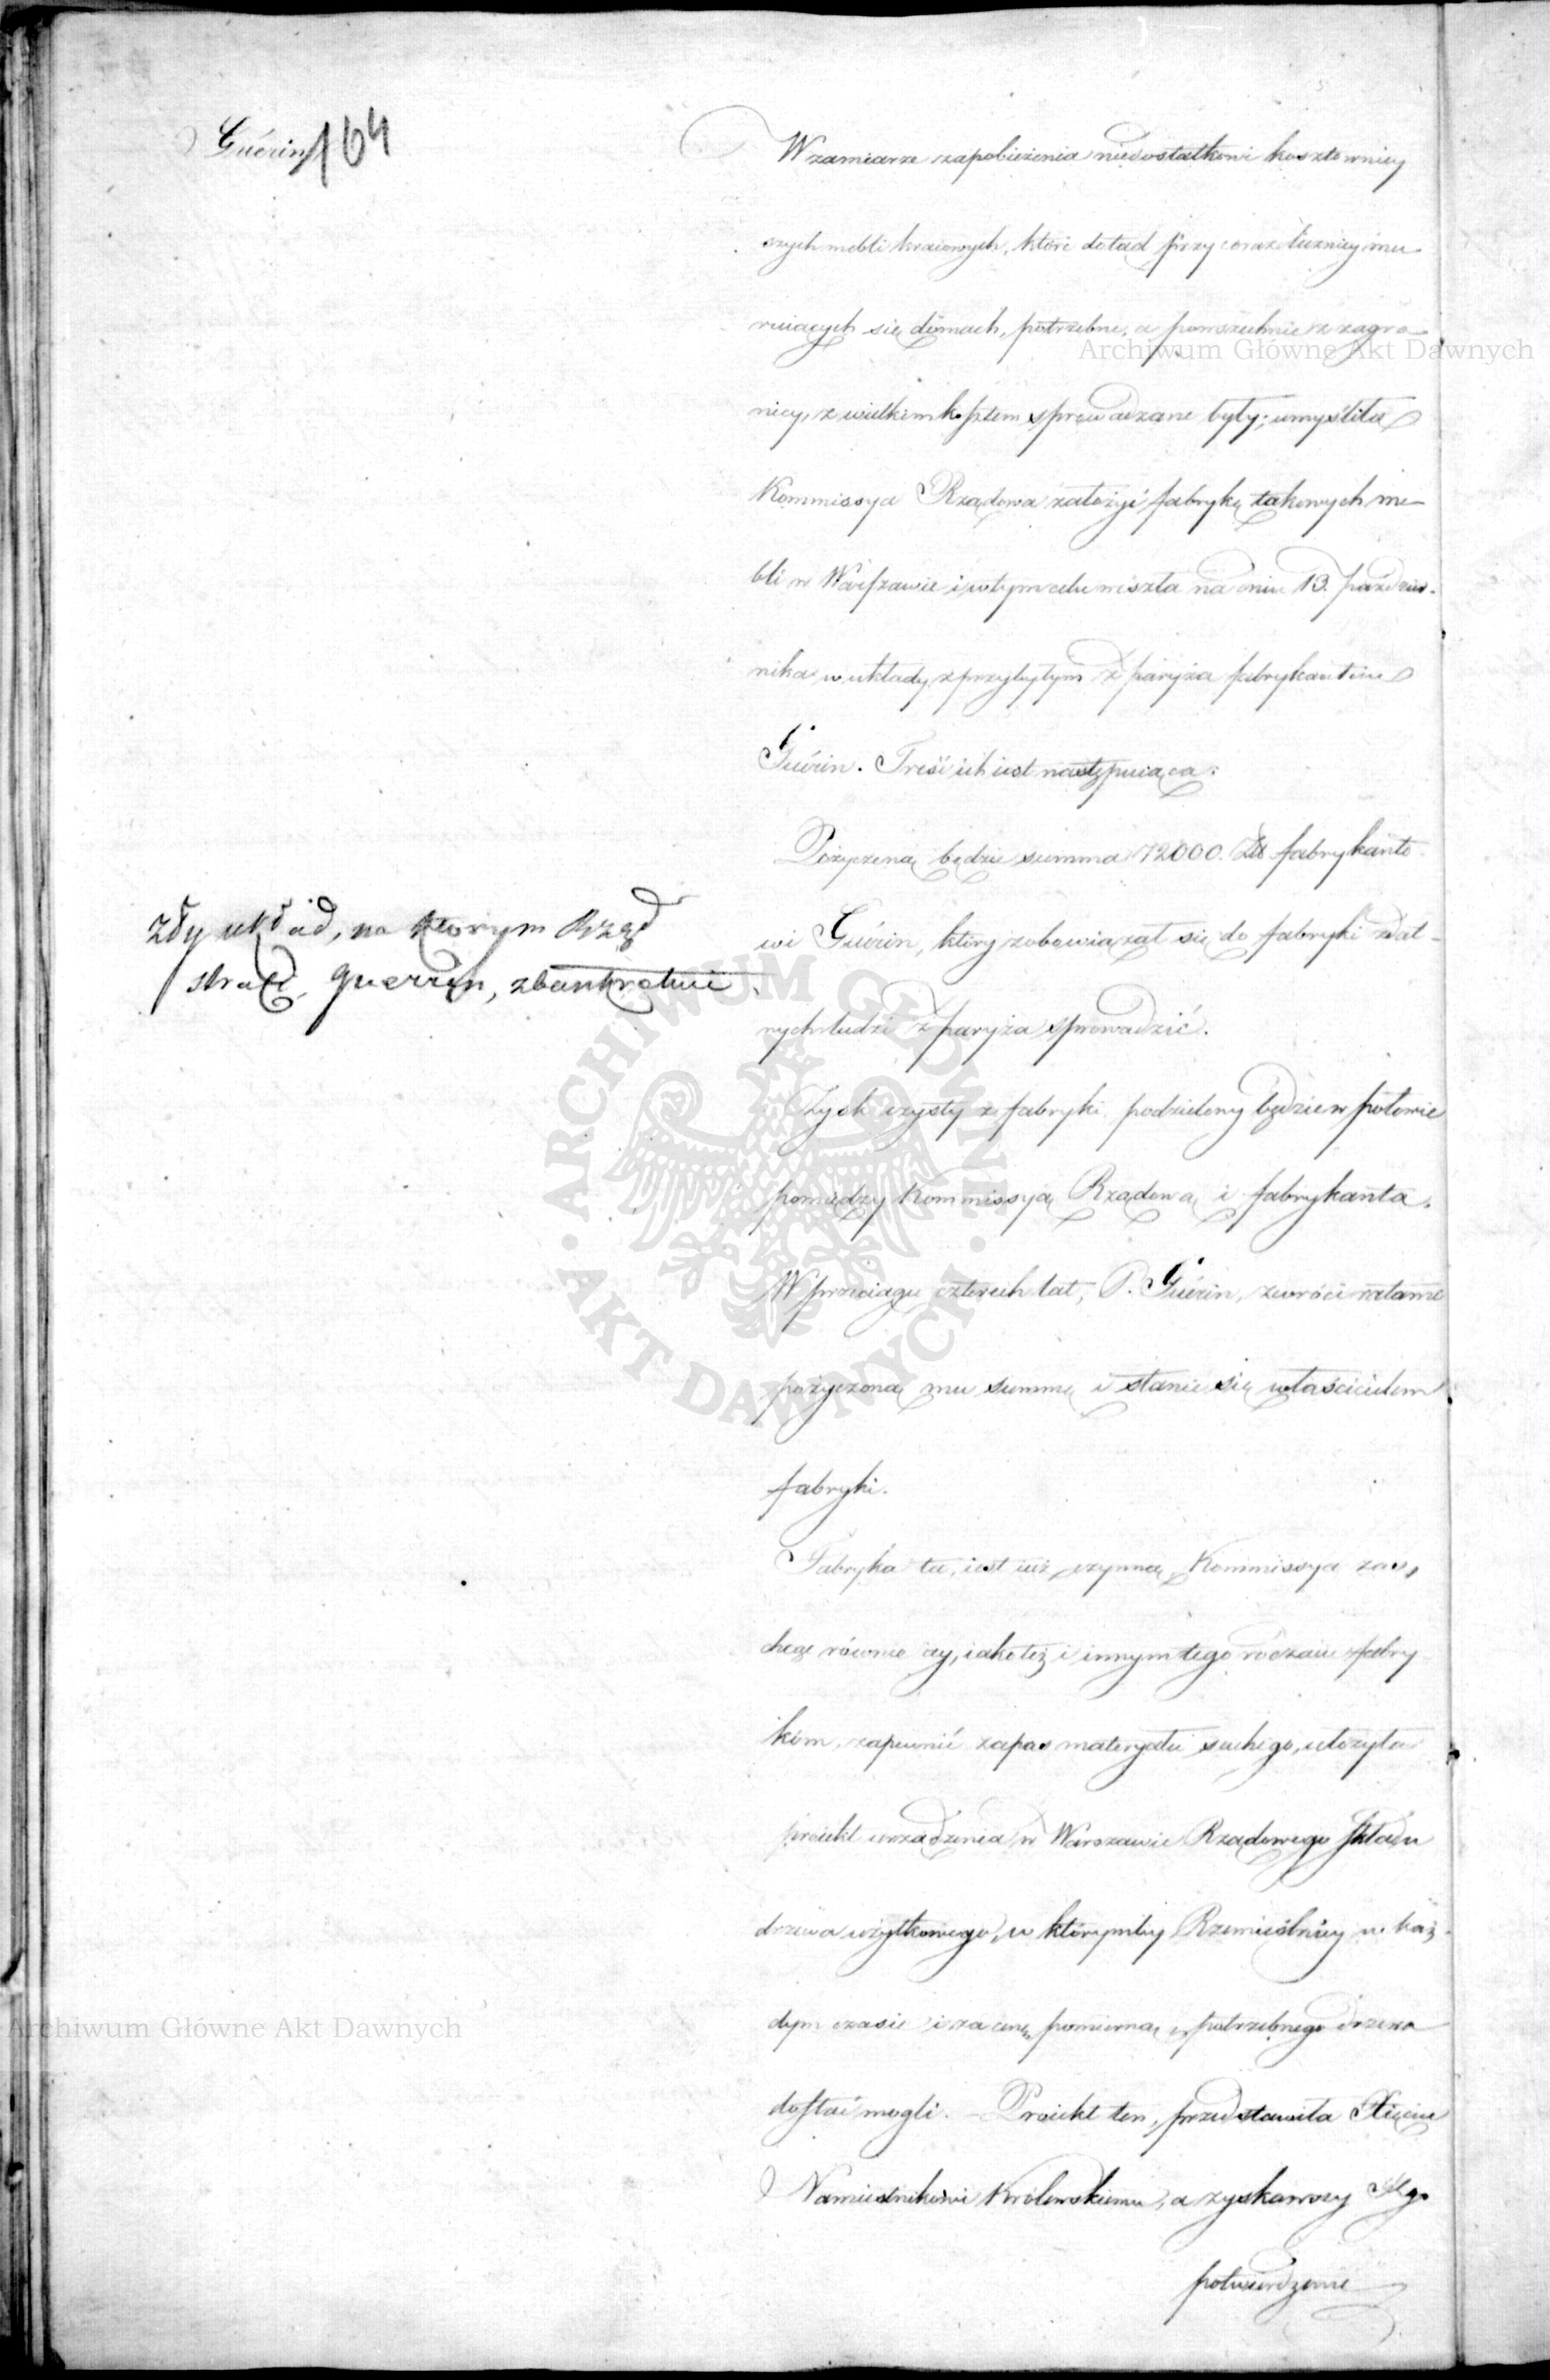 Guérin 164
W zamiarze zapobieżenia niedostatkowi kosztowniey
szych mebli kraiowych, które dotąd przy coraz liczniey mu
ruiących się domach, potrzebne, a powszechnie z zagra
nicy, z wielkim kosztem sprowadzane były; umyśliła
Kommissya Rządowa założyć fabrykę takowych me
bli w Warszawie i w tym celu weszła na dniu 13. Paździer
nika w układy z przybyłym z Paryża fabrykantem
Guérin. Treść ich iest następuiąca:
Pożyczoną będzie summa 72000. Złł fabrykanto
wi Guérin, który zobowiązał się do fabryki zdat-
nych ludzi z Paryża sprowadzić.
Zły układ, na którym Rząd
straci, Guerrin, zbankrutuie
Zysk czysty z fabryki podzielony będzie w połowie
pomiędzy Kommissyą Rządową i fabrykanta.
W przeciągu czterech lat, P. Guérin, zwróci ratami
pożyczoną mu summę i stanie się właścicielem
fabryki.
Fabryka ta, iest iuż czynną, Kommissya zaś,
chcąc równie iey, iako też i innym tego rodzaiu fabry
kom, zapewnić zapas materyału suchego, ułożyła
proiekt urządzenia w Warszawie Rządowego Składu
drzewa użytkowego, w którymby Rzemieślnicy w każ-
dym czasie i za cenę pomierną, potrzebnego drzewa
dostać mogli. - Proiekt ten, przedstawiła Xięciu
Namiestnikowi Królewskiemu, a zyskawszy Jego
potwierdzenie
Archiwum Główne Akt Dawnych
Archiwum Główne Akt Dawnych
ARCHIWUM GŁÓWNE · AKT DAWNYCH ·